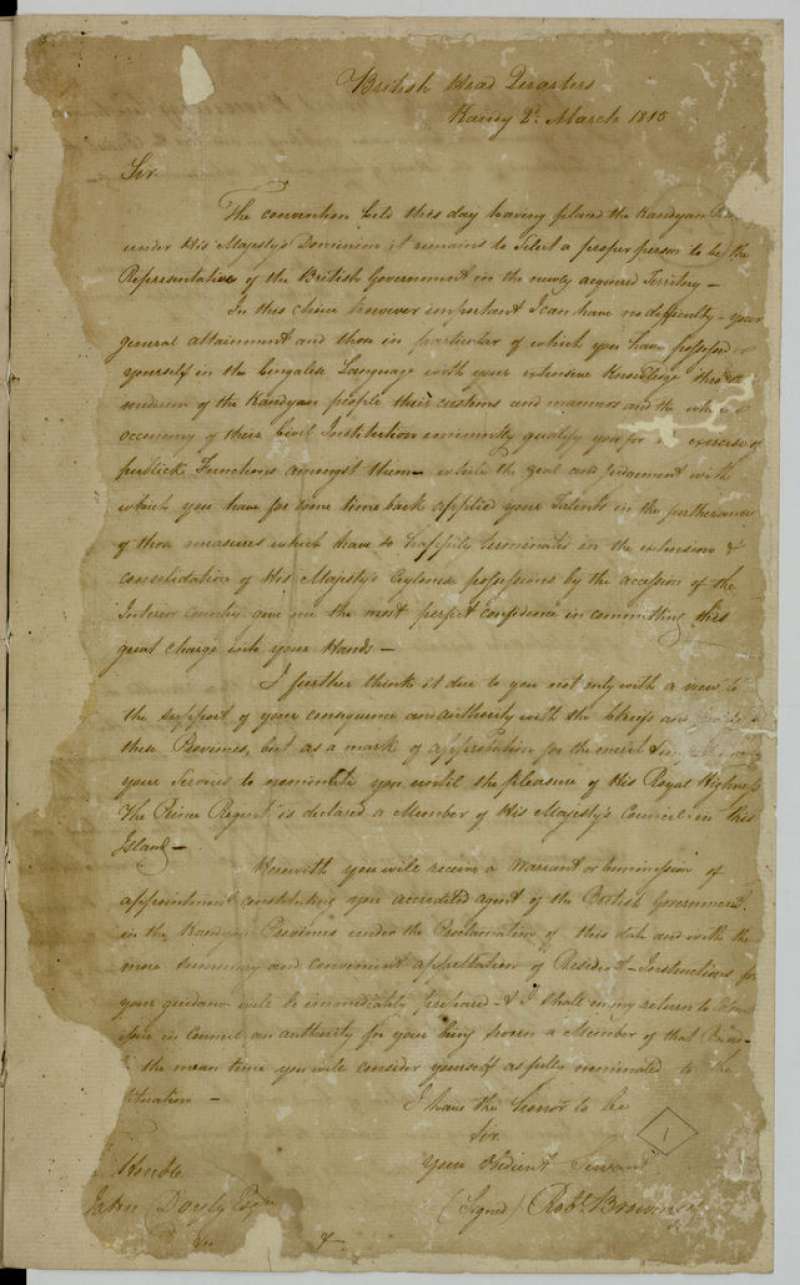 British Head Quarters
Kandy 2d. March 1815
Sir
The convention held this day having placed the Kandyan
under His Majesty's Dominion it remains to select a proper person to be the
Representative of the British Government in the newly acquired Territory –
In this choice however important I can have no difficulty – your
general attainment and those in particular of which you have possessed
yourself in the Cingalese Language with your extensive Knowledge
of the Kandyan people their customs and manners and the whole
oeconomy of their Civil Institution eminently qualify you for exercise of
publick Functions amongst them – while the zeal and judgement with
which you have for some time back applied your Talents in the furtherance
of those measures which have so happily terminated in the extension &
consolidation of His Majesty's Ceylonese possessions by the accession of the
Interior Country give me the most perfect confidence in committing this
great charge into your Hands –
I further think it due to you not only with a view to
the support of your consequence and authority with the Chiefs and
these Provinces, but as a mark of approbation for the merit &
your Services to nominate you until the pleasure of His Royal Highness
The Prince Regent is declared a Member of His Majesty's Council in this
Island –
Herewith you will receive a Warrant or Commission of
appointment constituting you accredited agent of the British Government
in the Kandyan Provinces under the Proclamation of this date and with the
more summary and convenient appellation of Resident – Instructions for
your guidance will be immediately prepared – & I shall on my return to
issue in Council an authority for your being sworn a Member of that
the mean time you will consider yourself as fully nominated to the
situation –
I have the honor to be
Sir
Your Obedient Servant
(Signed) Robt. Brownrigg
Honble
John Doyly Esqr
1